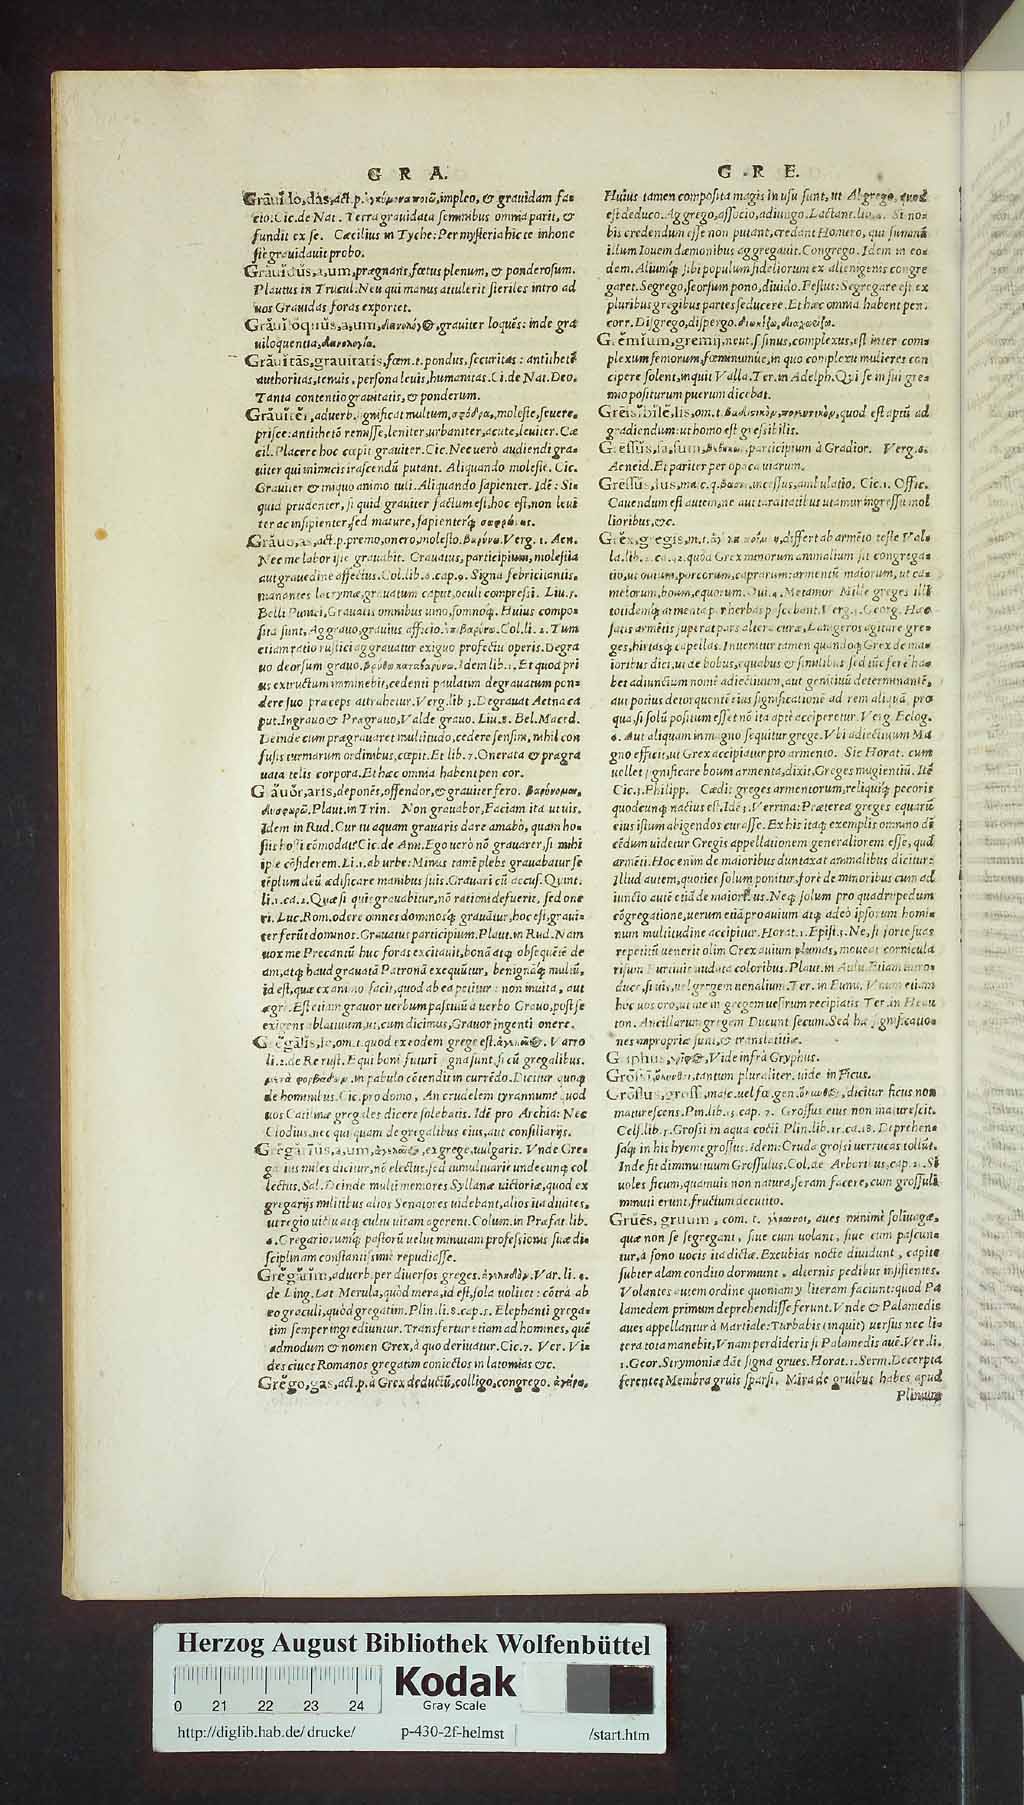 G R A.
Grăuĭdo, das, act. p. impleo, & grauidam fa-
cio. Cic. de Nat. Terra grauidata seminibus omnia parit, &
fundit ex se. Cæcilius in Tyche: Per mysteria hic te inhone
ste grauidauit probo.
Grăuĭdŭs, a, um, prægnans, fœtus plenum, & ponderosum.
Plautus in Trucul. Neu qui manus attulerit steriles intro ad
nos Grauidas foras exportet.
Grăuĭlŏquŭs, a, um, grauiter loquēs: inde gra
uiloquentia,
Grăuĭtās, grauitatis, fœm. t. pondus, securitas: antithetō
authoritas, tenuis, persona leuis, humanitas. Ci. de Nat. Deo.
Tanta contentio grauitatis, & ponderum.
Grăuĭtĕr, aduerb. significat multum, σφόδρα, moleste, seuere,
prisce: antithetō remisse, leniter, urbaniter, acute, leuiter. Cæ
cil. Placere hoc cœpit grauiter. Cic. Nec uerò audiendi gra-
uiter qui inimicis irascendū putant. Aliquando moleste. Cic.
Grauiter & iniquo animo tuli. Aliquando sapienter. Idē: Si-
quid prudenter, si quid grauiter factum est, hoc est, non leui
ter ac insipienter, sed mature, sapienterq́
Grăuo, as, act. p. premo, onero, molesto. Βαρύνω. Verg. 2. Aen.
Nec me labor iste grauabit. Grauatus, participium, molestia
aut grauedine affectus. Col. lib. 6. cap. 9. Signa febricitantis,
manantes lacrymæ, grauatum caput, oculi compressi. Liu. 5.
Belli Punici, Grauatis omnibus uino, somnoq́. Huius compo-
sita sunt, Aggrauo, grauius afficio. Col. li. 2. Tum
etiam ratio rustici aggrauatur exiguo profectu operis. Degra
uo deorsum grauo. Idem lib. 1. Et quod pri
us extructum imminebit, cedenti paulatim degrauatum pon-
dere suo præceps attrahetur. Verg. lib 3. Degrauat Aetna ca
put. Ingrauo & Prægrauo, Valde grauo. Liu. 5. Bel. Maced.
Deinde cum prægrauaret multitudo, cedere sensim, nihil con
fusis turmarum ordinibus, cœpit. Et lib. 7. Onerata & prægra
uata telis corpora. Et hæc omnia habent pen cor.
Grăuŏr, aris, deponēs, offendor, & grauiter fero.
Plaut. in Trin. Non grauabor, Faciam ita ut uis.
Idem in Rud. Cur tu aquam grauaris dare amabò, quam ho-
stis hosti cōmodat? Cic. de Am. Ego uerò nō grauarer, si mihi
ipse cōfiderem. Li. 1. ab urbe: Minus tamē plebs grauabatur se
tēplum deū ædificare manibus suis. Grauari cū accus. Quint.
li. 1. ca. 2. Quæ si quis grauabitur, nō rationi defuerit, sed one
ri. Luc. Rom. odere omnes dominosq́ grauātur, hoc est, graui-
ter ferūt dominos. Grauatus participium. Plaut. in Rud. Nam
uox me Precantū huc foras excitauit, bonā atq́ obsequētē de
am, atq́ haud grauatā Patronā exequūtur, benignāq́ multū,
id est, quæ ex animo facit, quod ab ea petitur: non inuita, aut
ægre. Est etiam grauor uerbum passiuū à uerbo Grauo, post se
exigens ablatiuum, ut, cum dicimus, Grauor ingenti onere.
Grĕgālis, le, om. t. quod ex eodem grege est. Varro
li. 2. de Re rust. Equi boni futuri signa sunt, si cū gregalibus.
in pabulo cōtendit in currēdo. Dicitur quoq́
de hominibus. Cic. pro domo, An crudelem tyrannum? quod
uos Catilinæ gregales dicere solebatis. Idē pro Archia: Nec
Clodius, nec quisquam de gregalibus eius, aut consiliarijs.
Grĕgārĭŭs, a, um, ex grege, uulgaris. Vnde Gre-
garius miles dicitur, nō electus, sed tumultuariè undecunq́ col
lectus. Sal. Deinde multi memores Syllanæ uictoriæ, quod ex
gregarijs militibus alios Senatores uidebant, alios ita diuites,
ut regio uictu atq́ cultu uitam agerent. Colum. in Præfat. lib.
6. Gregariorumq́ pastorū uelut minutam professionis suæ di-
sciplinam constantissimè repudiasse.
Grĕgātim, aduerb. per diuersos greges. Var. li. 4.
de Ling. Lat. Merula, quòd mera, id est, sola uolitet: cōtrà ab
eo graculi, quòd gregatim. Plin. li. 8. cap. 5. Elephanti grega-
tim semper ingrediuntur. Transfertur etiam ad homines, quē
admodum & nomen Grex, à quo deriuatur. Cic. 7. Ver. Vi-
des ciues Romanos gregatim coniectos in latomias &c.
Grĕgo, gas, act. p. à Grex deductū, colligo, congrego. ἀγείρω.
G R E.
Huius tamen composita magis in usu sunt, ut Abgrego, quod
est deduco. Aggrego, associo, adiungo. Lactant. li. 4. Si no-
bis credendum esse non putant, credant Homero, qui summū
illum Iouem dæmonibus aggregauit. Congrego. Idem in eo-
dem. Aliumq́ sibi populum fideliorum ex alienigenis congre
garet. Segrego, seorsum pono, diuido. Festus: Segregare est ex
pluribus gregibus partes seducere. Et hæc omnia habent pen.
corr. Disgrego, dispergo.
Grĕmĭum, gremij, neut. s. sinus, complexus, est inter com-
plexum femorum, fœminumue, in quo complexu mulieres con
cipere solent, inquit Valla. Ter. in Adelph. Qui se in sui gre-
mio positurum puerum dicebat.
Gressĭbĭlĕ, lis, om. t. quod est aptū ad
gradiendum: ut homo est gressibilis.
Gressŭs, sa, sum, participium à Gradior. Verg. 6.
Aeneid. Et pariter per opaca uiarum.
Gressŭs, sus, masc. q. incessus, ambulatio. Cic. 1. Offic.
Cauendum est autem, ne aut tarditatibus utamur ingressu mol
lioribus, &c.
Grĕx, gregis, m. t. differt ab armēto teste Val-
la. lib. 4. ca. 42. quòd Grex minorum animalium sit congrega-
tio, ut ouium, porcorum, caprarum: armentū maiorum, ut ca-
melorum, boum, equorum. Oui. 4. Metamor Mille greges illi
totidemq́ armenta per herbas pascebant. Verg. 3. Georg. Hoc
satis armētis superat pars altera curæ, Lanigeros agitare gre-
ges, hirtasq́ capellas. Inuenitur tamen quandoq́ Grex de ma-
ioribus dici, ut de bobus, equabus & similibus sed tūc ferè ha-
bet adiunctum nomē adiectiuum, aut genitiuū determinantē,
aut potius detorquentē eius significationē ad rem aliquā, pro
qua, si solū positum esset nō ita aptè acciperetur. Verg. Eclog.
6. Aut aliquam in magno sequitur grege. Vbi adiectiuum Ma
gno efficit, ut Grex accipiatur pro armento. Sic Horat. cum
uellet significare boum armenta, dixit, Greges mugientiū. Itē
Cic. 3. Philipp. Cædit greges armentorum, reliquiq́ pecoris
quodcunq́ nactus est. Idē 3. Verrina: Præterea greges equarū
eius istum abigendos curasse. Ex his itaq́ exemplis omnino di
cēdum uidetur Gregis appellationem generaliorem esse, quā
armēti. Hoc enim de maioribus duntaxat animalibus dicitur:
Illud autem, quoties solum ponitur, ferè de minoribus cum ad
iuncto autē etiā de maioribus. Neq́ solum pro quadrupedum
cōgregatione, uerum etiā pro auium atq́ adeò ipsorum homi-
num multitudine accipitur. Horat. 1. Epist. 3. Ne, si forte suas
repetitū uenerit olim Grex auium plumas, moueat cornicula
risum Furtiuis nudata coloribus. Plaut. in Aulu. Etiam intro-
duce, si uis, uel gregem uenalium. Ter. in Eunu. Vnum etiam
hoc uos oro, ut me in gregem uestrum recipiatis Ter. in Heau
ton. Ancillarum gregem Ducunt secum. Sed hæ significatio-
nes impropriæ sunt, & translatitiæ.
Griphus, Vide infrà Gryphus.
Grossi, tantum pluraliter. uide in Ficus.
Grossus, grossi, masc. uel fœ. gen. dicitur ficus non
maturescens. Pin. lib. 15 cap. 7. Grossus eius non maturescit.
Cels. lib. 5. Grossi in aqua cocti Plin. lib. 15. ca. 18. Deprehen-
saq́ in his hyeme grossus. Idem: Cruda grossi uerrucas tollūt.
Inde fit diminutiuum Grossulus. Col. de Arboribus, cap. 21. Si
uoles ficum, quamuis non natura, seram facere, cum grossuli
minuti erunt, fructum decutito.
Grŭēs, gruum, com. t. γέρανοι, aues minimè soliuagæ,
quæ non se segregant, siue cum uolant, siue cum pascun-
tur, à sono uocis ita dictæ. Excubias nocte diuidunt, capite
subter alam condito dormiunt, alternis pedibus insistentes.
Volantes autem ordine quoniam y literam faciunt: quod Pa
lamedem primum deprehendisse ferunt. Vnde & Palamedis
aues appellantur à Martiale: Turbabis (inquit) uersus nec li-
tera tota manebit, Vnam perdideris si Palamedis auē. Ver. li.
1. Geor. Strymoniæ dāt signa grues. Horat. 2. Serm. Decerpta
ferentes Membra gruis sparsi. Mira de gruibus habes apud
Plinium
Herzog August Bibliothek Wolfenbüttel
Kodak
Gray Scale
0 21 22 23 24
http://diglib.hab.de/drucke/ p-430-2f-helmst /start.htm